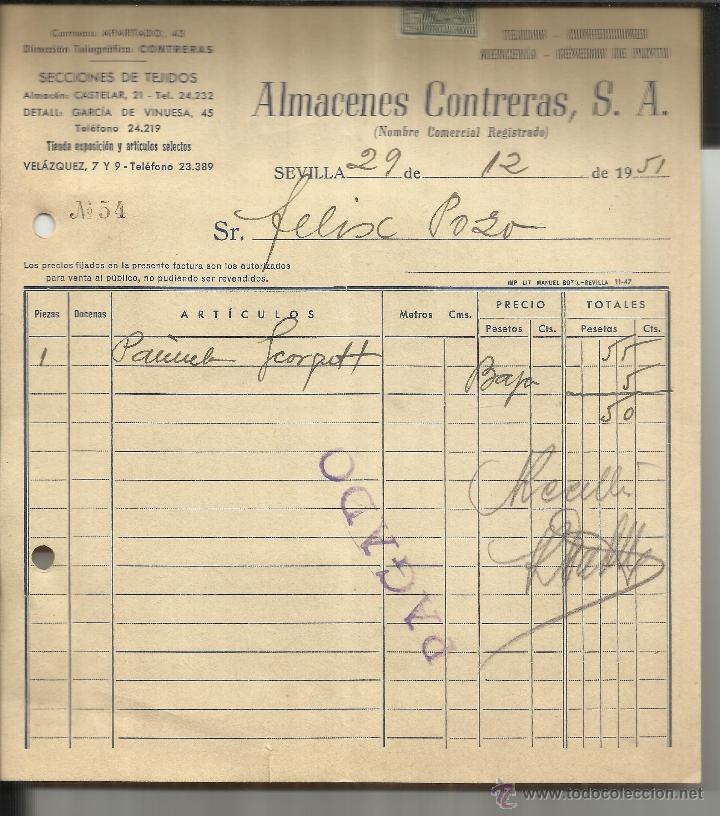 Correos: APARTADO, 43
Dirección Telegráfica: CONTRERAS
SECCIONES DE TEJIDOS
Almacén: CASTELAR, 21 - Tel. 24.232
DETALL: GARCÍA DE VINUESA, 45
Teléfono 24.219
Tienda exposición y artículos selectos
VELÁZQUEZ, 7 Y 9 - Teléfono 23.389
TEJIDOS - CONFECCIONES
MERCERIA - GENEROS DE PUNTO
Almacenes Contreras, S. A.
(Nombre Comercial Registrado)
SEVILLA 29 de 12 de 1951
Nº 54
Sr. Felix Pozo
Los precios fijados en la presente factura son los autorizados
para venta al público, no pudiendo ser revendidos.
IMP. LIT. MANUEL SOTO.-SEVILLA 11-47
Piezas Docenas ARTÍCULOS Metros Cms. PRECIO TOTALES
Pesetas Cts. Pesetas Cts.
1 Pañuelo 55
Baja 5
50
Recibí
PAGADO
www.todocoleccion.net